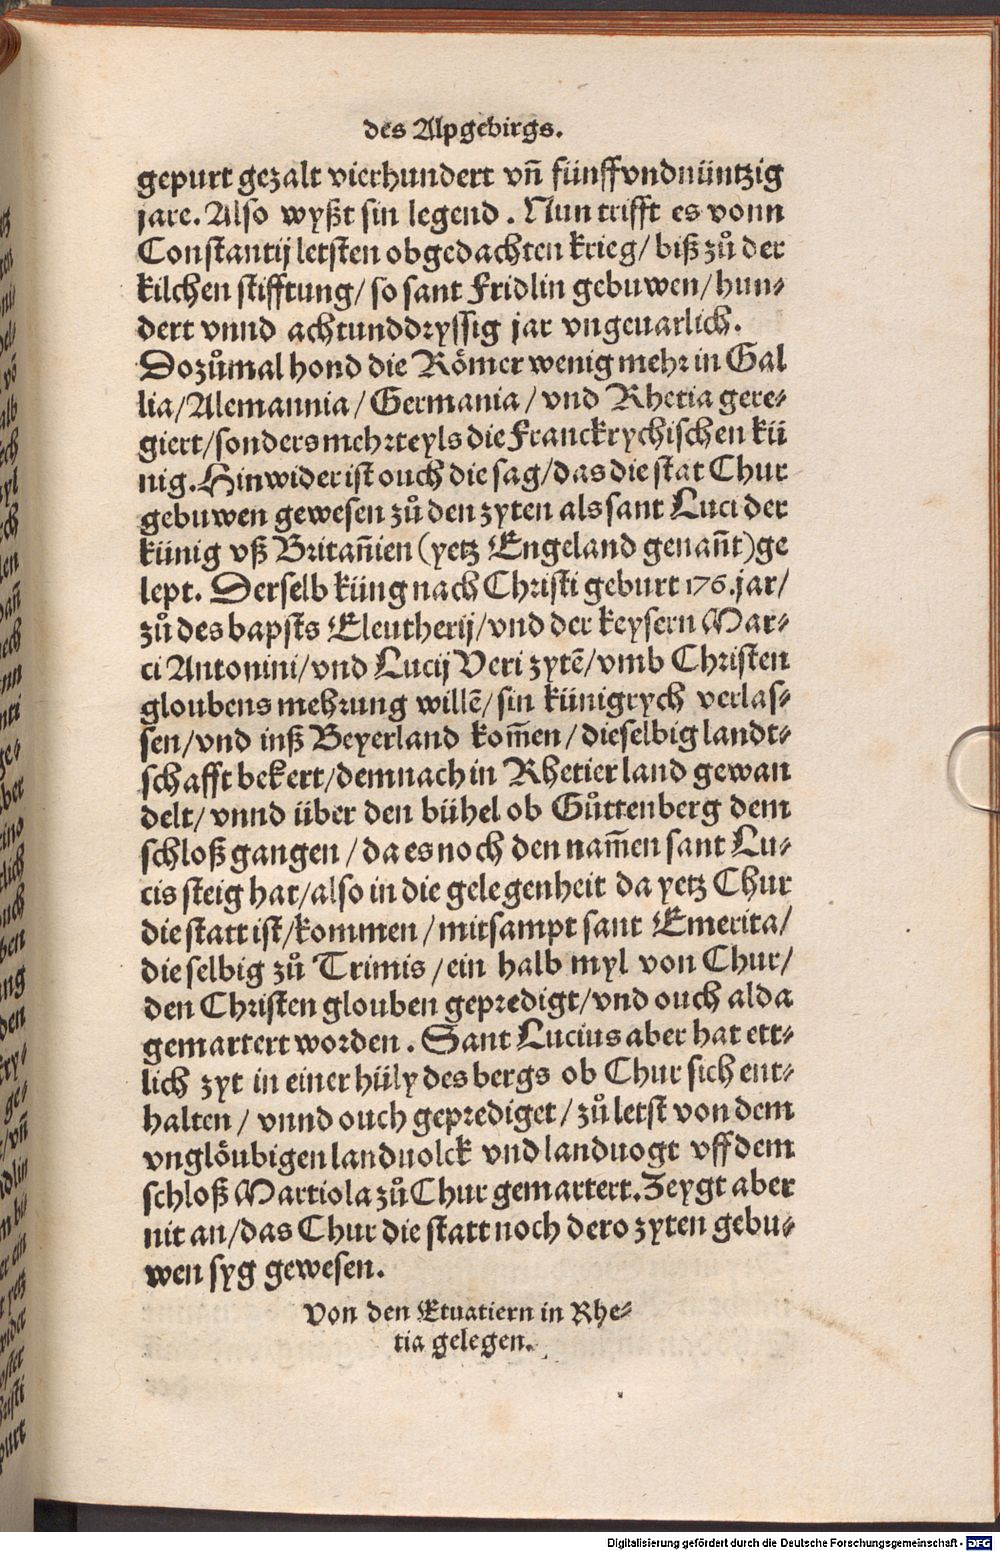 des Alpgebirgs.
gepurt gezalt vierhundert vñ fünffvndnüntzig
jare. Also wyßt sin legend. Nun trifft es vonn
Constantij letsten obgedachten krieg/ biß zů der
kilchen stifftung/ so sant Fridlin gebuwen/ hun⸗
dert vnnd achtunddryssig jar vngeuarlich.
Dozůmal hond die Römer wenig mehr in Gal
lia/ Alemannia/ Germania/ vnd Rhetia gere⸗
giert/ sonders mehrteyls die Franckrychischen kü
nig. Hinwider ist ouch die sag/ das die stat Chur
gebuwen gewesen zů den zyten als sant Luci der
künig vß Britañien (yetz Engeland genañt) ge
lept. Derselb küng nach Christi geburt 176. jar/
zů des bapsts Eleutherij/ vnd der keysern Mar⸗
ci Antonini/ vnd Lucij Veri zytẽ/ vmb Christen
gloubens mehrung willẽ/ sin künigrych verlas⸗
sen/ vnd inß Beyerland kom̃en/ dieselbig landt⸗
schafft bekert/ demnach in Rhetier land gewan
delt/ vnnd über den bühel ob Gůttenberg dem
schloß gangen/ da es noch den nam̃en sant Lu⸗
cis steig hat/ also in die gelegenheit da yetz Chur
die statt ist/ kommen/ mitsampt sant Emerita/
die selbig zů Trimis/ ein halb myl von Chur/
den Christen glouben gepredigt/ vnd ouch alda
gemartert worden. Sant Lucius aber hat ett⸗
lich zyt in einer hüly des bergs ob Chur sich ent⸗
halten/ vnnd ouch geprediget/ zů letst von dem
vnglöubigen landuolck vnd landuogt vff dem
schloß Martiola zů Chur gemartert. Zeygt aber
nit an/ das Chur die statt noch dero zyten gebu⸗
wen syg gewesen.
Von den Etuatiern in Rhe⸗
tia gelegen.
Digitalisierung gefördert durch die Deutsche Forschungsgemeinschaft - DFG